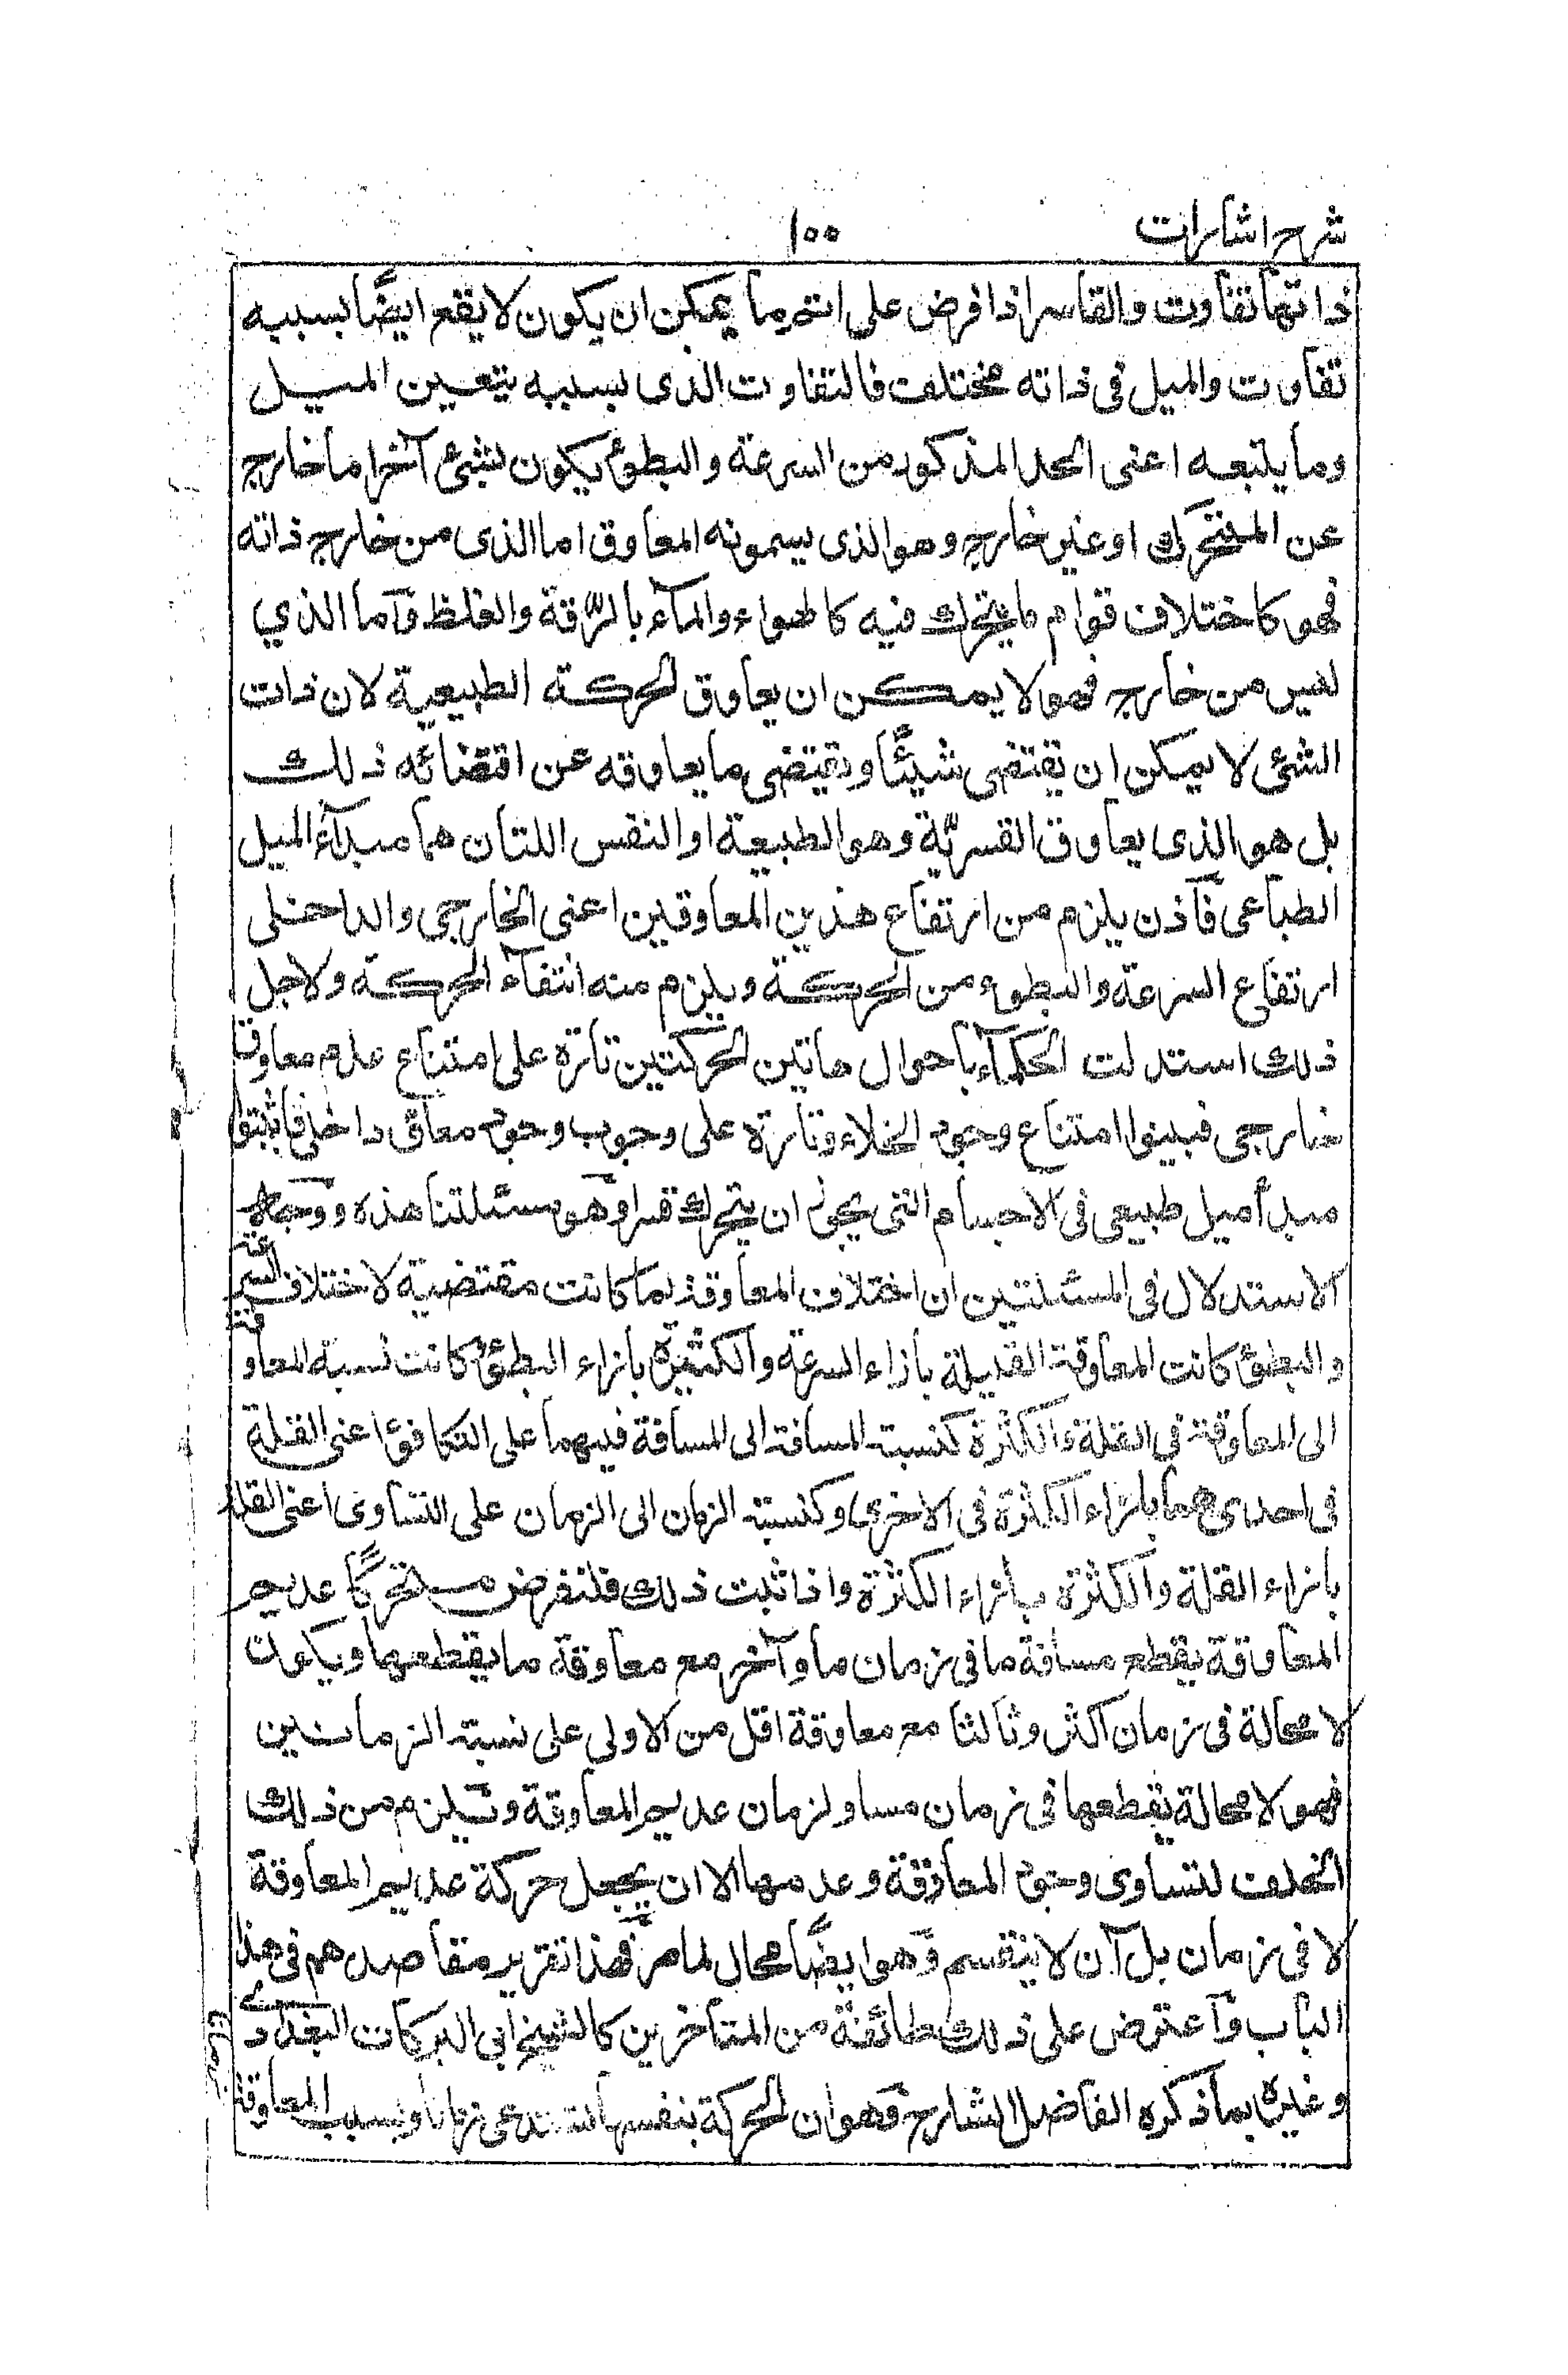 شرح اشارات
١٥٥
ذاتها تفاوت والقاسر اذا فرض على اتم ما يمكن ان يكون لا يقع ايضًا بسببه
تفاوت والميل فى ذاته مختلف فالتفاوت الذى بسببه يتعين الميل
وما يتبعه اعنى الحد المذكور من السرعة والبطوء يكون بشئ آخر اما خارج
عن المتحرك او غير خارج وهو الذى يسمونه المعاوق اما الذى من خارج ذاته
فهو كاختلاف قوام ما يتحرك فيه كالهواء والمآء بالرّقة والغلظ وآما الذي
ليس من خارج فهو لا يمكن ان يعاوق الحركة الطبيعية لان ذات
الشئ لا يمكن ان يقتضى شيئًا ويقتضى ما يعاوقه عن اقتضائه ذلك
بل هو الذى يعاوق القسريّة وهو الطبيعة او النفس اللتان هما مبدآء الميل
الطباعى فآذن يلزم من ارتفاع هذين المعاوقين اعنى الخارجى والداخلى
ارتفاع السرعة والبطوء من الحركة ويلزم منه انتفآء الحركة ولاجل
ذلك استدلت الحكمآء باحوال هاتين الحركتين تارة على امتناع عدم معاوق
خارجى فبينوا امتناع وجود الخلاء وتارة على وجوب وجود معاوق داخلى فاثبتوا
مبدأ ميل طبيعى فى الاجسام التى يجوز ان يتحرك قسرا وهو مسئلتنا هذه ووجه
الاستدلال فى المسئلتين ان اختلاف المعاوقة لما كانت مقتضية لاختلاف السرعة
والبطوئ كانت المعاوقة القليلة بأزاء السرعة والكثيرة بازاء البطوئ كانت نسبة المعاوقة
الى المعاوقة فى القلة والكثرة كنسبة المسافة الى المسافة فيهما على التكافوء اعنى القلة
فى احدىهما بازاء الكثرة فى الاخرى وكنسبة الزمان الى الزمان على التساوى اعنى القلة
بازاء القلة والكثرة بأزاء الكثرة واذا ثبت ذلك فلنفرض متحركًا عديم
المعاوقة يقطع مسافة ما فى زمان ما وآخر مع معاوقة ما يقطعها ويكون
لا محالة فى زمان اكثر وثالثا مع معاوقة اقل من الاولى على نسبة الزمانين
فهو لا محالة يقطعها فى زمان مساو لزمان عديم المعاوقة ويلزم من ذلك
الخلف لتساوى وجود المعاوقة وعدمها الا ان يجعل حركة عديم المعاوقة
لا فى زمان بل آن لا ينقسم وهو ايضًا محال لما مر فهذا تقرير مقاصدهم فى هذا
الباب وآعترض على ذلك طائفة من المتأخرين كالشيخ ابى البركات البغدادى
وغيره بما ذكره الفاضل الشارح وهو ان الحركة بنفسها تستدعى زمانا وبسبب المعاوقة